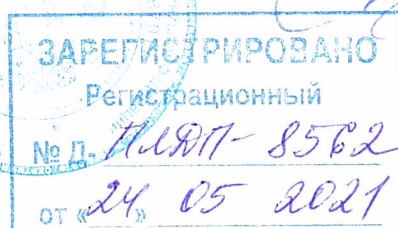 ЗАРЕГИСТРИРОВАНО
Регистрационный
№ Д- ПЛДП- 8562
от «24» 05 2021